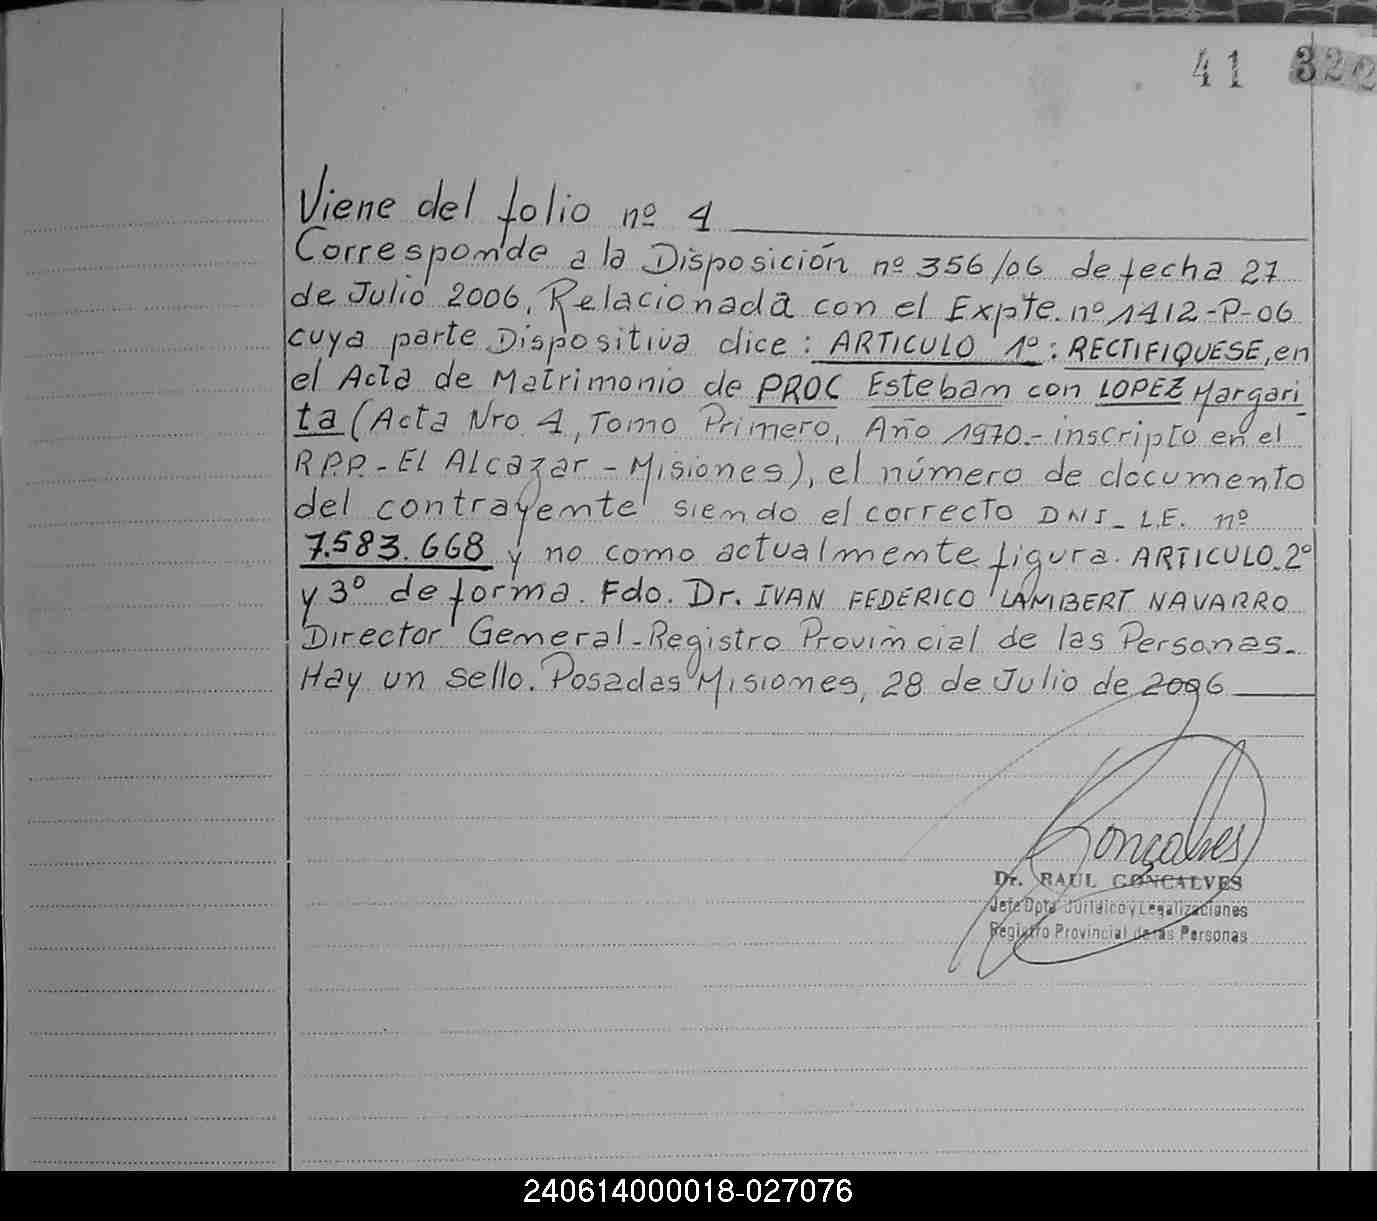 41 322
Viene del folio nº 4
Corresponde a la Disposición nº 356/06 de fecha 27
de Julio 2006, Relacionada con el Expte. nº 1412-P-06
cuya parte Dispositiva dice: ARTICULO 1º: RECTIFIQUESE, en
el Acta de Matrimonio de PROC Estebam con LOPEZ Margari
ta (Acta Nro. 4, Tomo Primero, Año 1970.- inscripto en el
R.P.P.- El Alcazar - Misiones), el número de documento
del contrayente siendo el correcto DNI - L.E. nº
7.583.668 y no como actualmente figura. ARTICULO 2º
y 3º de forma. Fdo. Dr. IVAN FEDERICO LAMBERT NAVARRO
Director General - Registro Provincial de las Personas.
Hay un sello. Posadas Misiones, 28 de Julio de 2006
Gonçalves
Dr. RAUL GONCALVES
Jefe Dpto Jurídico y Legalizaciones
Registro Provincial de las Personas
240614000018-027076